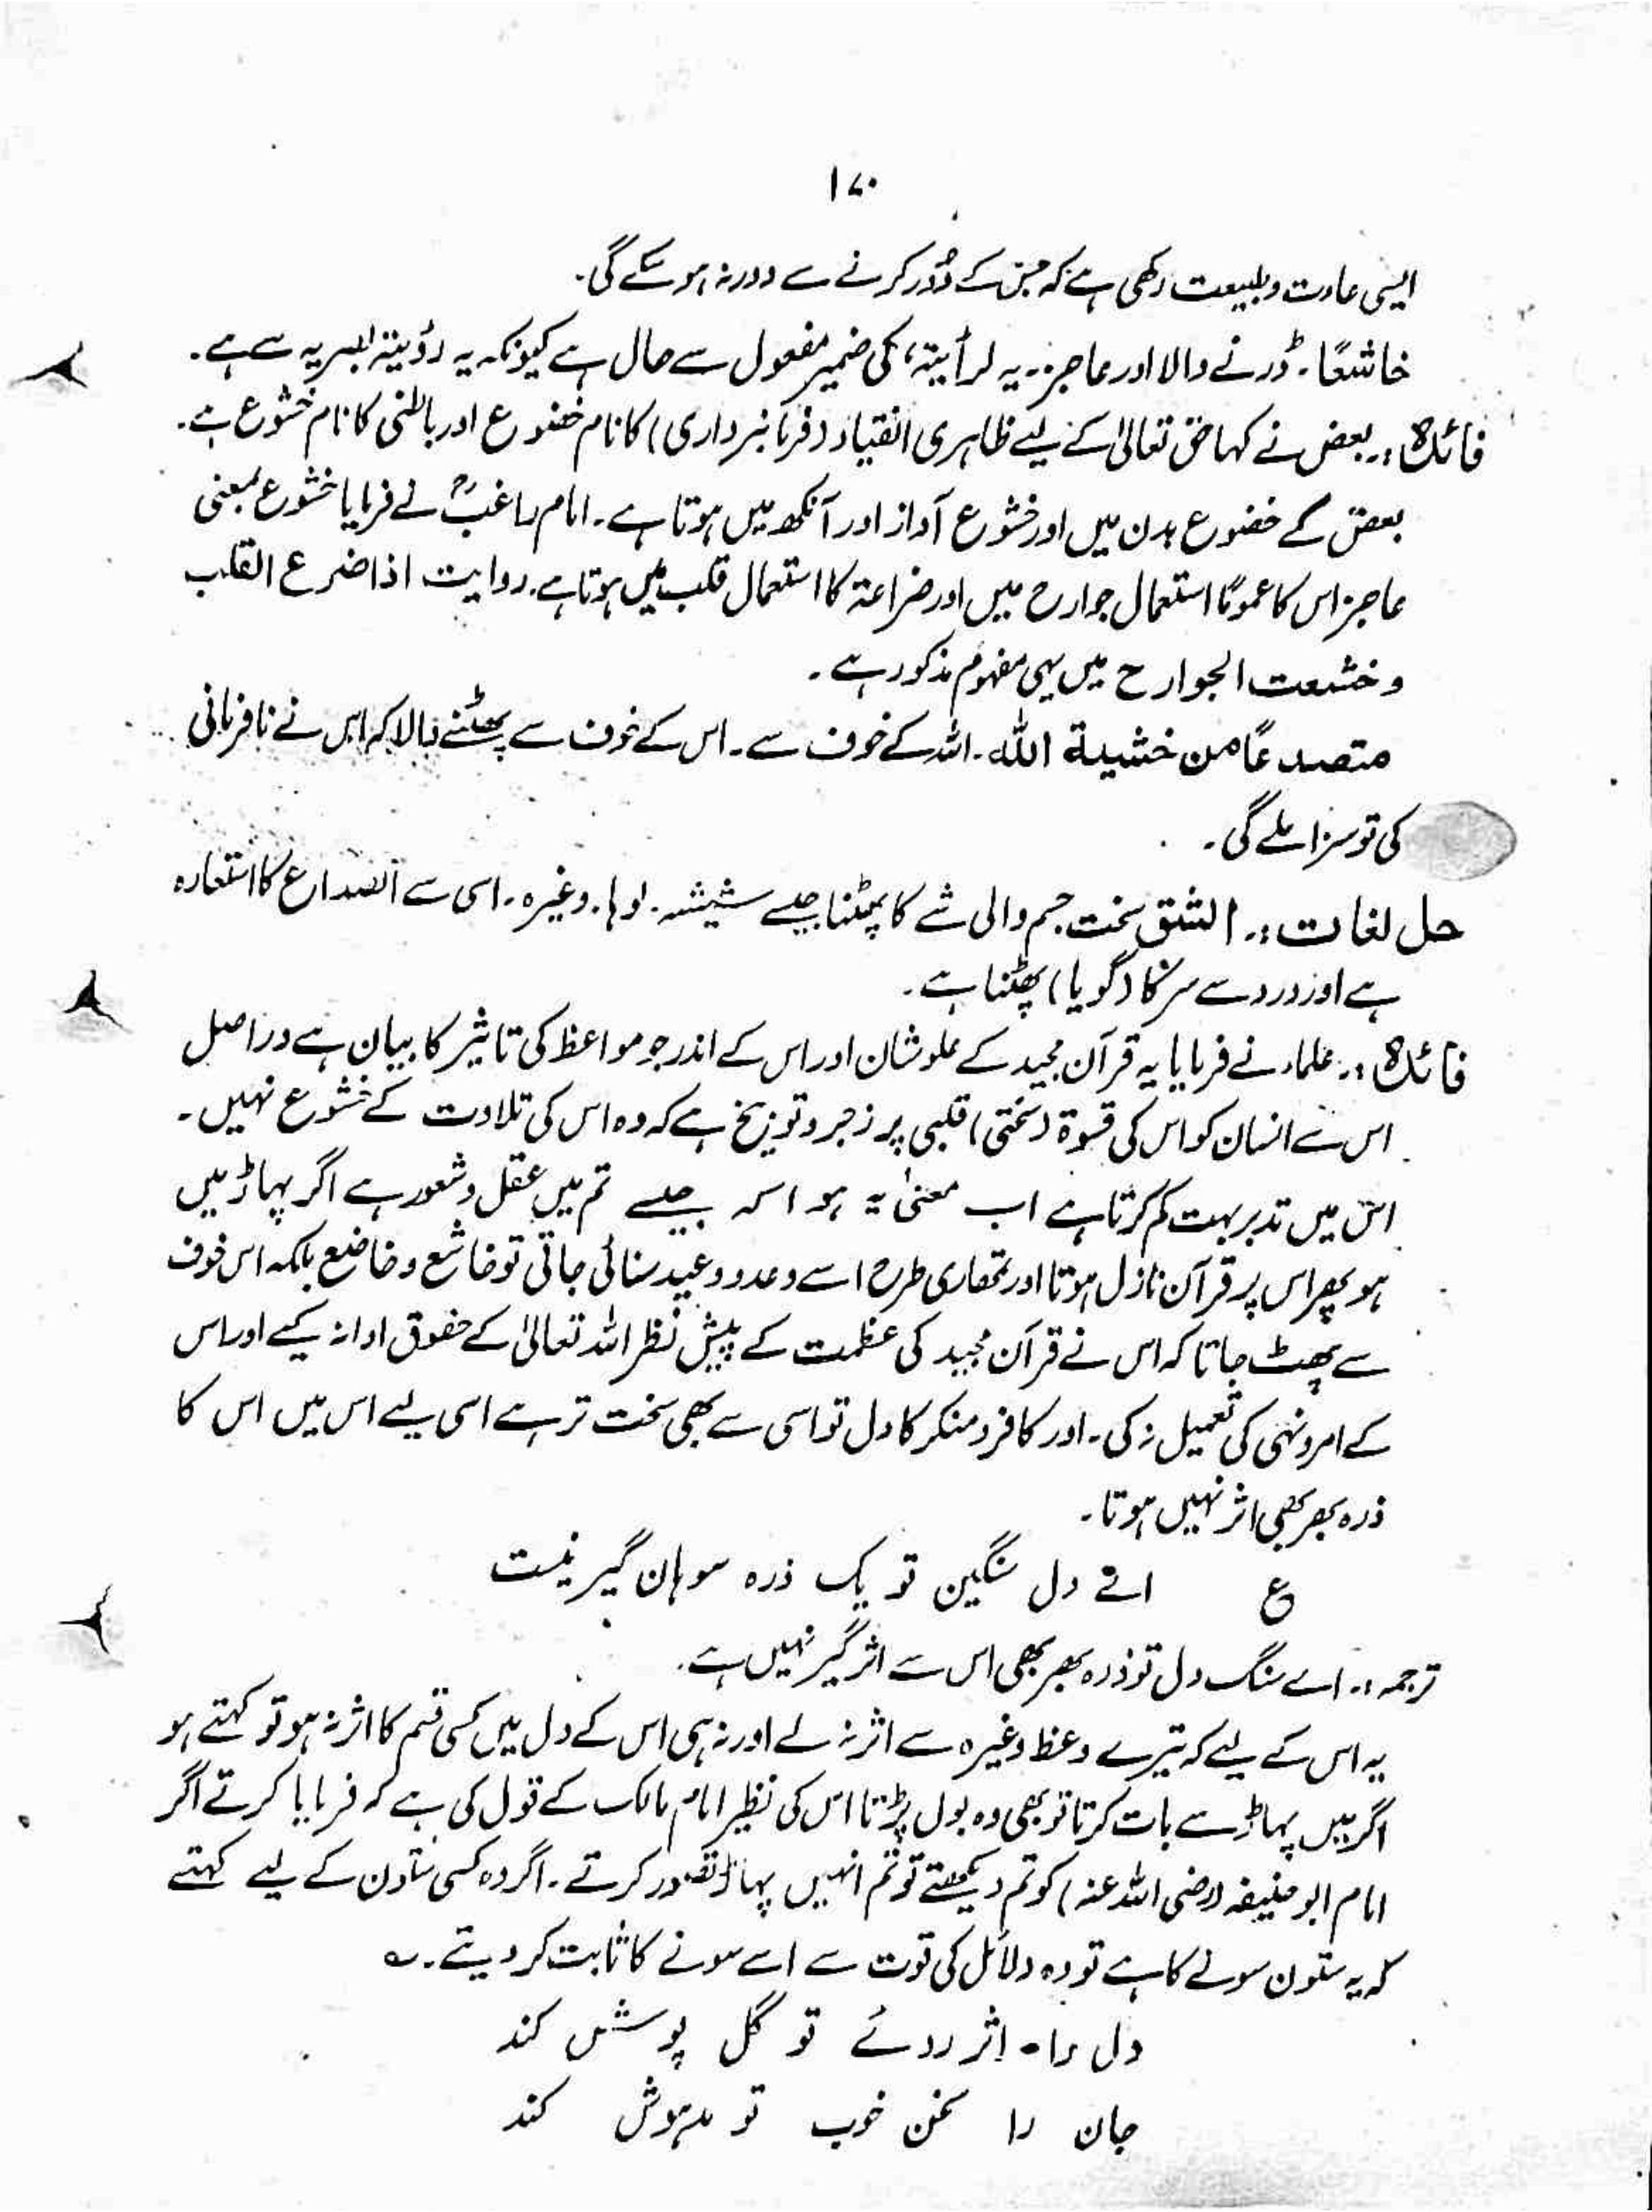 ۱۷۰
ایسی عادت و طبیعت رکھی ہے کہ جس کے دُور کرنے سے دور نہ ہو سکے گی۔
خاشعًا۔ ڈرنے والا اور عاجز۔ یہ لرأیتہ، کی ضمیر مفعول سے حال ہے کیونکہ یہ رؤیتہ بصریہ سے ہے۔
فائدہ:۔ بعض نے کہا حق تعالیٰ کے لیے ظاہری انقیاد (فرمانبرداری) کا نام خضوع اور باطنی کا نام خشوع ہے۔
بعض کے خضوع بدن میں اور خشوع آواز اور آنکھ میں ہوتا ہے۔ امام راغبؒ نے فرمایا خشوع بمعنی
عاجز اس کا عمومًا استعمال جوارح میں اور ضراعۃ کا استعمال قلب میں ہوتا ہے۔ روایت اذا ضرع القلب
وخشعت الجوارح میں یہی مفہوم مذکور ہے۔
متصدعًا من خشیۃ اللہ۔ اللہ کے خوف سے۔ اس کے خوف سے پھٹنے والا کہ اس نے نافرمانی
کی تو سزا ملے گی۔
حل لغات:۔ الشق سخت جسم والی شے کا پھٹنا جیسے شیشہ۔ لوہا۔ وغیرہ۔ اسی سے انصداع کا استعارہ
ہے اور درد سے سر کا (گویا) پھٹنا ہے۔
فائدہ:۔ علماء نے فرمایا یہ قرآن مجید کے علو شان اور اس کے اندر جو مواعظ کی تاثیر کا بیان ہے دراصل
اس سے انسان کو اس کی قسوۃ (سختی) قلبی پر زجر و توبیخ ہے کہ وہ اس کی تلاوت کے خشوع نہیں۔
اس میں تدبر بہت کم کرتا ہے اب معنیٰ یہ ہوا کہ جیسے تم میں عقل و شعور ہے اگر پہاڑ میں
ہو پھر اس پر قرآن نازل ہوتا اور تمھاری طرح اسے وعدہ و وعید سنائی جاتی تو خاشع و خاضع بلکہ اس خوف
سے پھٹ جاتا کہ اس نے قرآن مجید کی عظمت کے پیش نظر اللہ تعالیٰ کے حقوق ادا نہ کیے اور اس
کے امر و نہی کی تعمیل نہ کی۔ اور کافر و منکر کا دل تو اسی سے بھی سخت تر ہے اسی لیے اس میں اس کا
ذرہ بھر بھی اثر نہیں ہوتا۔
ع اے دل سنگین تو یک ذرہ سوہان گیر نیست
ترجمہ:۔ اے سنگ دل تو ذرہ بھر بھی اس سے اثر گیر نہیں ہے۔
یہ اس کے لیے کہ تیرے وعظ وغیرہ سے اثر نہ لے اور نہ ہی اس کے دل میں کسی قسم کا اثر نہ ہو تو کہتے ہو
اگر میں پہاڑ سے بات کرتا تو بھی وہ بول پڑتا اس کی نظیر امام مالک کے قول کی ہے کہ فرمایا کرتے اگر
امام ابو حنیفہ (رضی اللہ عنہ) کو تم دیکھتے تو تم انہیں پہاڑ تصور کرتے۔ اگر وہ کسی ستون کے لیے کہتے
کہ یہ ستون سونے کا ہے تو وہ دلائل کی قوت سے اسے سونے کا ثابت کر دیتے۔ ؎
دل را اثر روئے تو گل پوشش کند
جان را سخن خوب تو مدہوش کند